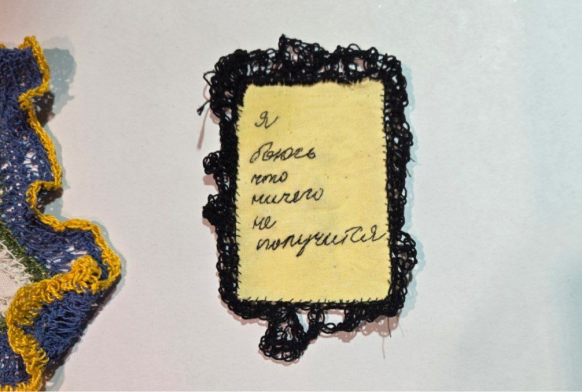 Я
боюсь
что
ничего
не
получится